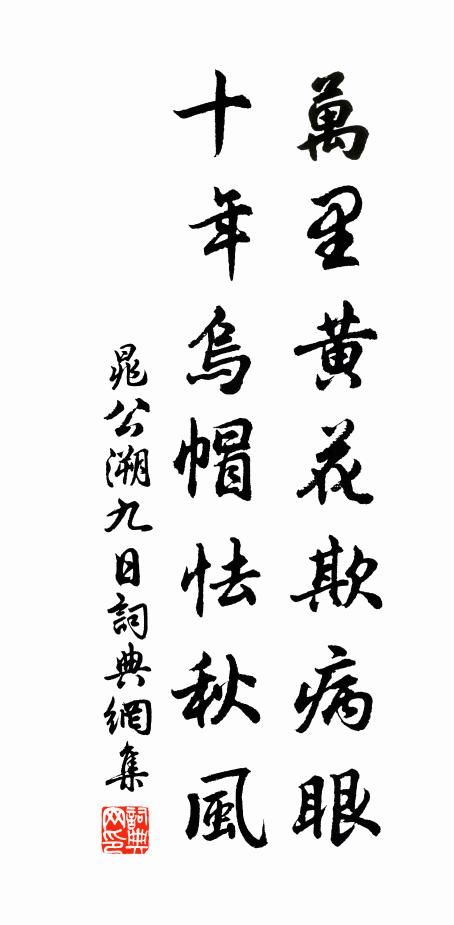 萬里黄花欺病眼
十年烏帽怯秋風
晁公溯九日詞典網集
詞典网印